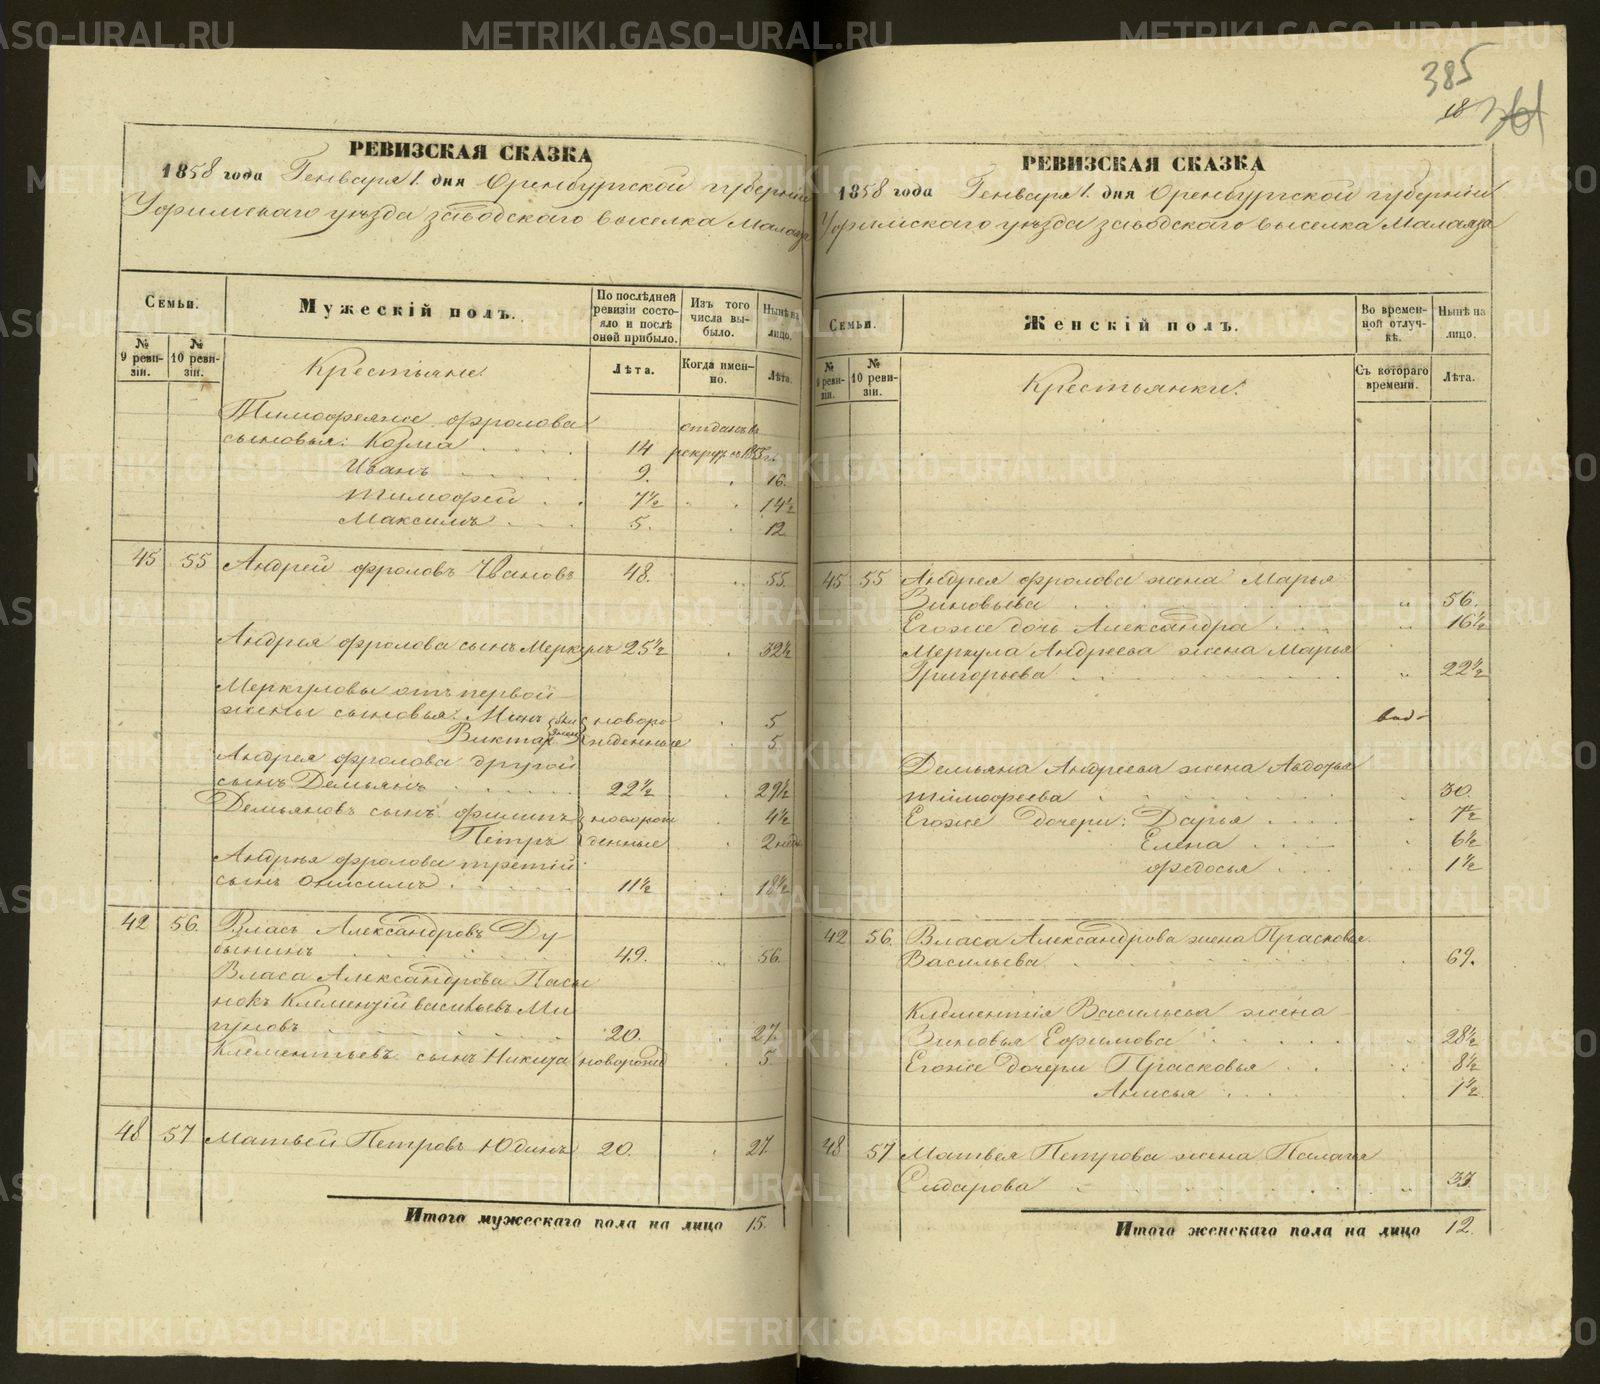 385
18
РЕВИЗСКАЯ СКАЗКА
1858 года Генваря 1. дня Оренбургской губерніи
Уфимскаго уѣзда заводскаго выселка Малаяза
Семьи.
Мужескій полъ.
По послѣдней ревизіи состояло и послѣ оной прибыло.
Изъ того числа выбыло.
Нынѣ на лицо.
№ 9 ревизіи.
№ 10 ревизіи.
Крестьяне.
Лѣта.
Когда именно.
Лѣта.
Тимофеяже Фролова отданъ въ
сыновья: Козма 14 рекруты 1855 г.
Иванъ 9. 16.
Тимофей 7 1/2 14 1/2
Максимъ 5. 12
45 55 Андрей Фроловъ Ивановъ 48. 55.
Андрея Фролова сынъ Меркулъ 25 1/2 32 1/2
Меркуловы отъ первой
жены сыновья: новоро 5
Виктаръ жденные 5.
Андрея Фролова другой
сынъ Демьянъ 22 1/2 29 1/2
Демьяновъ сынъ Филипъ новорож 4 1/2
Петръ денные 2 неде
Андрея Фролова третій
сынъ Онисимъ 11 1/2 18 1/2
42 56. Власъ Александровъ Ду
бынинъ 49. 56.
Власа Александрова Пасы
нокъ Клементій Васильевъ Ми
гуновъ 20. 27.
Клементьевъ сынъ Никита новорожд 5.
48 57 Матвей Петровъ Юдинъ 20. 27.
Итого мужескаго пола на лицо 15.
РЕВИЗСКАЯ СКАЗКА
1858 года Генваря 1. дня Оренбургской губерніи
Уфимскаго уѣзда заводскаго выселка Малаяза
Семьи.
Женскій полъ.
Во временной отлучкѣ.
Нынѣ на лицо.
№ 9 ревизіи.
№ 10 ревизіи.
Крестьянки.
Съ котораго времени.
Лѣта.
45 55 Андрея Фролова жена Марья
Зиновьева 56.
Егоже дочь Александра 16 1/2
Меркула Андреева жена Марья
Григорьева 22 1/2
Демьяна Андреева жена Авдотья
Тимофеева 30.
Егоже дочери: Дарья 7 1/2
Елена 6 1/2
Федосья 1 1/2
42 56. Власа Александрова жена Прасковья
Васильева 69.
Клементія Васильева жена
Зиновья Ефимова 28 1/2
Егоже дочери Прасковья 8 1/2
Анисья 1 1/2
48 57 Матвея Петрова жена Палагея
Сидарова 33
Итого женскаго пола на лицо 12.
METRIKI.GASO-URAL.RU